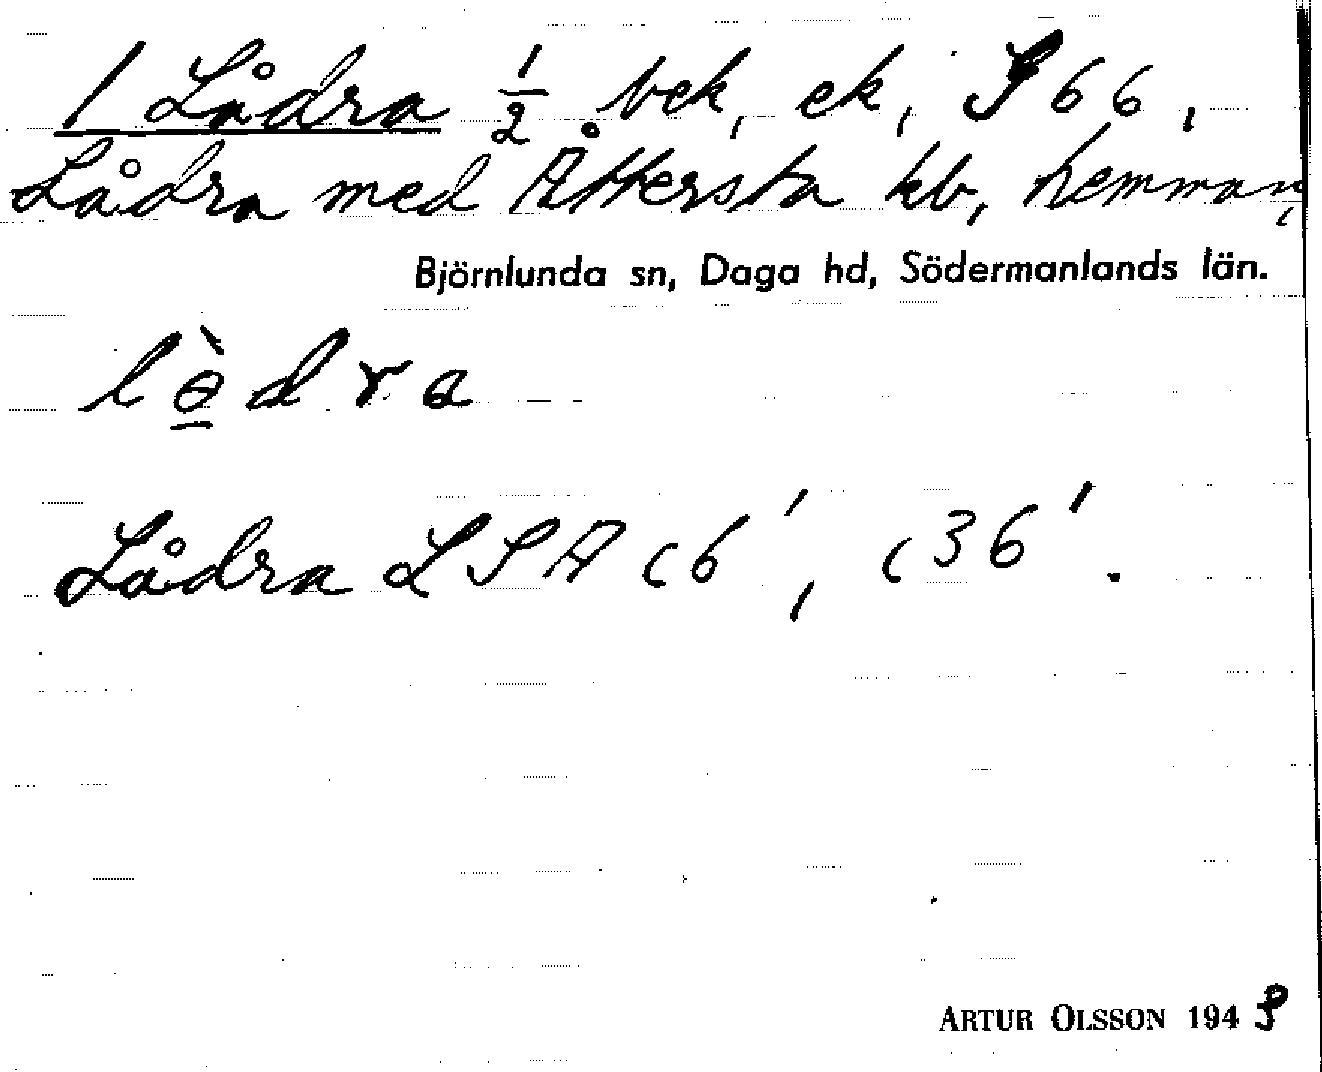 1 Lådra 1/2 bek, ek, S 66,
Lådra med Åttersta kb, hemman,
Björnlunda sn, Daga hd, Södermanlands län.
lɵ̠̀dra
Lådra LSA c6', c36'.
ARTUR OLSSON 1943